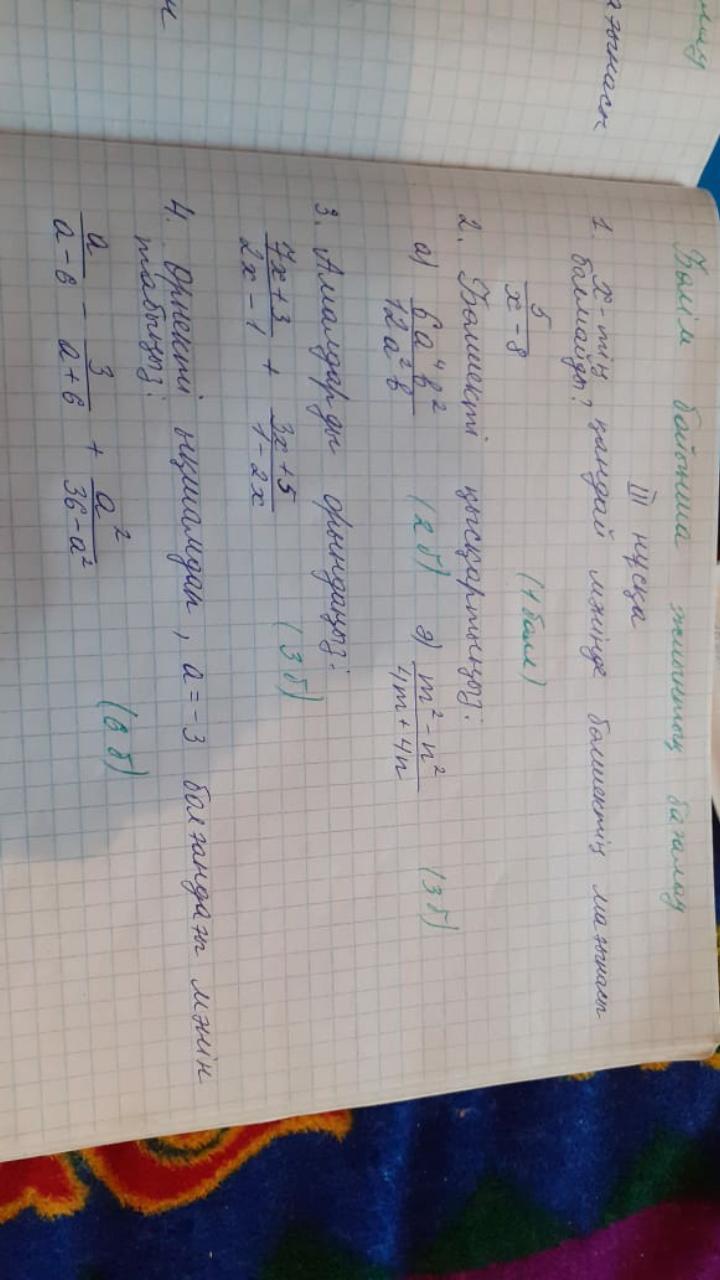 Бөлім бойынша жиынтық бағалау
III нұсқа
1. x-тің қандай мәнінде бөлшектің мағынасы
болмайды?
5/(x - 8) (1 балл)
2. Бөлшекті қысқартыңыз:
а) 6a⁴b²/12a²b (2 б) ә) (m² - n²)/(4m + 4n) (3 б)
3. Амалдарды орындаңыз:
(7x + 3)/(2x - 1) + (3x + 5)/(1 - 2x) (3 б)
4. Өрнекті ықшамдап, a = -3 болғандағы мәнін
табыңыз:
a/(a - 6) - 3/(a + 6) + a²/(36 - a²) (6 б)